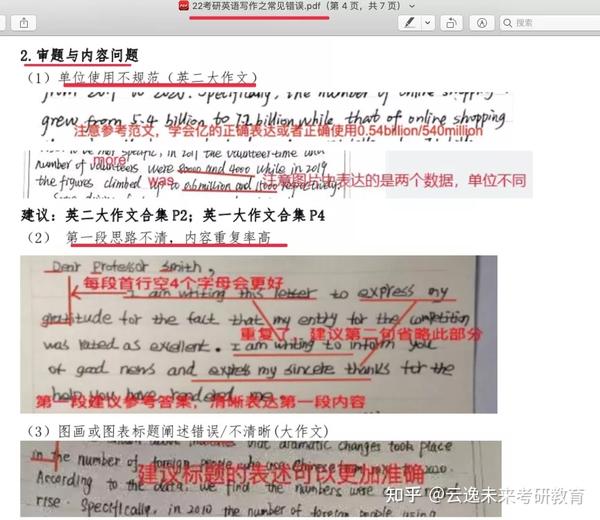 22考研英语写作之常见错误.pdf（第 4 页，共 7 页）
搜索
2.审题与内容问题
（1）单位使用不规范（英二大作文）
from 2019 to 2020. Specifically, the number of online shopping
grew from 5.4 billion to 7.2 billion while that of online shopping
注意参考范文，学会亿的正确表达或者正确使用0.54billion/540million
more
number of volunteers were 8000 and 4000 while in 2019
was
注意图片中表达的是两个数据，单位不同
the figures climbed up to
respectively
建议：英二大作文合集 P2；英一大作文合集 P4
（2） 第一段思路不清，内容重复率高
Dear Professor Smith,
每段首行空4个字母会更好
I am writing this letter to express my
gratitude for the fact that my entry for the competition
重复了 建议第二句省略此部分
was rated as excellent. I am writing to inform you
of good news and express my sincere thanks for the
help you have rendered me.
第一段建议参考答案，清晰表达第一段内容
（3）图画或图表标题阐述错误/不清晰(大作文)
that dramatic changes took place
in the number of foreign
2020.
建议标题的表述可以更加准确
According to the data, we find the numbers were
rise. Specifically, in 2010 the number of foreign people using
知乎 @云逸未来考研教育